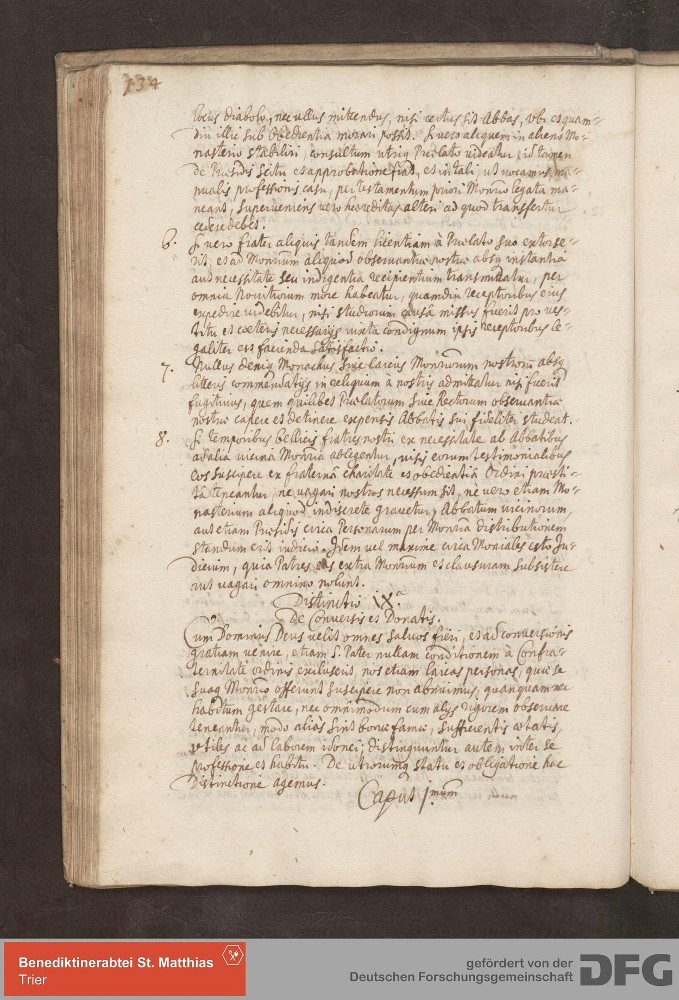 134
locus diabolo, nec ullus mittendus, nisi certus sit Abbas, vbi et quam-
diu illic sub obedientia morari possit. Si vero aliquem in alieno Mo-
nasterio stabiliri, consultum utriq Prælato videatur, id tamen
de Præsidis scitu et approbatione fiat, et in tali, ut vocamus, ma-
nualis professionis casu, per testamentum priori Monrio legata ma-
neant, superveniens vero hereditas alteri ad quod transfertur
cedere debet.
6. Si vero frater aliquis tandem licentiam à Prælato suo extorse-
rit, et ad Monrium aliquod observantiæ nostræ absq instantia
aut necessitate seu indigentia recipientium transmittatur, per
omnia Novitiorum more habeatur, quamdiu receptoribus eius
expedire videbitur, nisi studiorum causâ missus fuerit pro ves-
titu et cæteris necessarijs iuxta condignum ipsis receptoribus le-
galiter est facienda satisfactio.
7. Nullus deniq Monachus sive laicus Monriorum nostrorum absq
litteris commendatijs in reliquum à nostris admittatur nisi fuerit
fugitivus, quem quilibet Prælatorum sive Rectorum observantiæ
nostræ capere et detinere expensis Abbatis sui fideliter studeat.
8. Si temporibus bellicis fratres nostri ex necessitate ab Abbatibus
ad alia vicina Monria ablegentur, visis eorum testimonialibus
eos suscipere ex fraternâ charitate et obedientiâ Ordini præsti-
tâ teneantur, ne vagari nostros necessum sit, ne vero etiam Mo-
nasterium aliquod indiscrete gravetur, Abbatum vicinorum,
aut etiam Præsidis circa Personarum per Monria distributionem
standum erit iudicio. Idem vel maxime circa Moniales esto Ju-
dicium, quia Patres eas extra Monrium et clausuram subsistere
aut vagari omnino nolunt.
Distinctio IX.a
De Conversis et Donatis.
Cum Dominus Deus velit omnes salvos fieri, et ad conversionis
gratiam venire, etiam S. Pater nullam conditionem à Confra-
ternitate ordinis excluserit, nos etiam laicas personas, quæ se
suaq Monrio offerunt suscipere non abnuimus, quanquam nec
habitum gestare, nec omnimodum cum alijs rigorem observare
teneantur, modo aliàs sint bonæ famæ, sufficientis ætatis,
vtiles ac ad laborem idonei; distinguuntur autem inter se
professione et habitu. De utrorumq statu et obligatione hac
Distinctione agemus.
Caput 1mum
Benediktinerabtei St. Matthias
Trier
gefördert von der
Deutschen Forschungsgemeinschaft
DFG